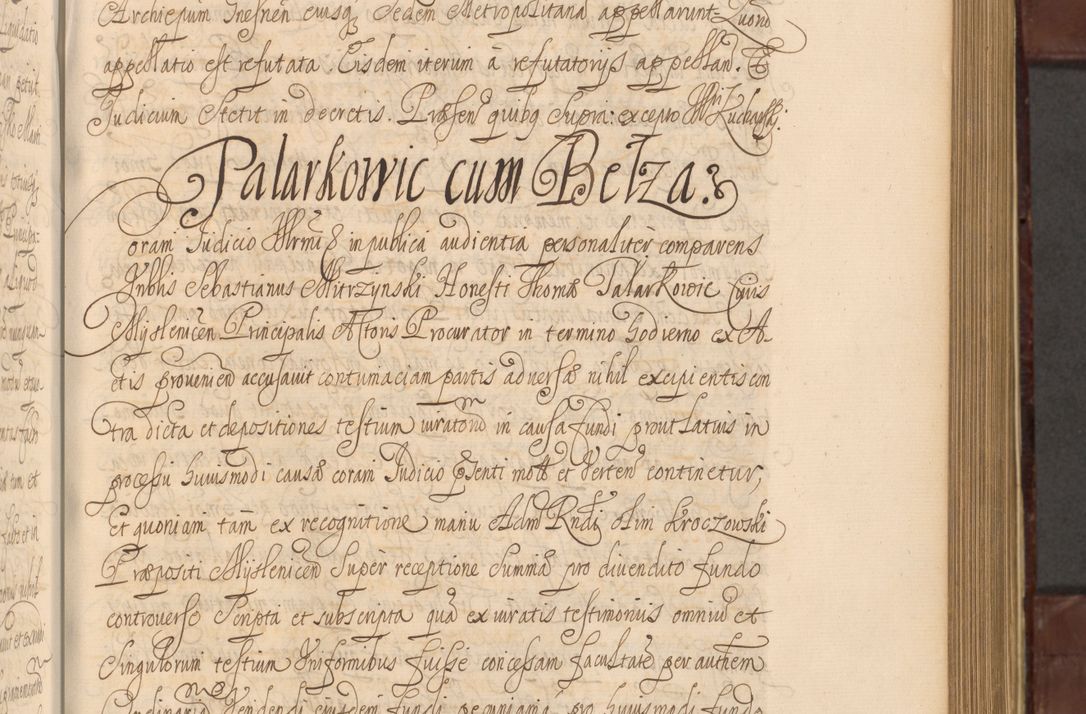 Archiepum Gnesnen eiusq Sedem Metropolitana appellarunt. Quorū
appellatio est refutata. Eisdem iterum à refutatorijs appelland. Et
Judicium stetit in decretis. Præsen quibq supra: excepto
Palarkowic cum Bełza.
oram Judicio in publica audientia personaliter comparens
Nblis Sebastianus Mitrzynski Honesti Thomæ Palarkowic Civis
Myslenicen Principalis Actoris Procurator in termino hodierno ex A-
ctis provenien accusavit contumaciam partis adversæ nihil excipientis con
tra dicta et depositiones testium iuratorū in causa fundi prout latius in
processu huiusmodi causæ coram Judicio præsenti mot et verten continetur,
Et quoniam tam ex recognitione manu Adm Rndi olim Kroczowski
Præpositi Myslenicen super receptione summæ pro divendito fundo
controverso scripta et subscripta quā ex iuratis testimoniis omniū et
singulorum testium uniformibus fuisse concessam facultatē per authem
Ordinariā vendendi eiusdem fundi pecuniamq pro huiusmodi fundo